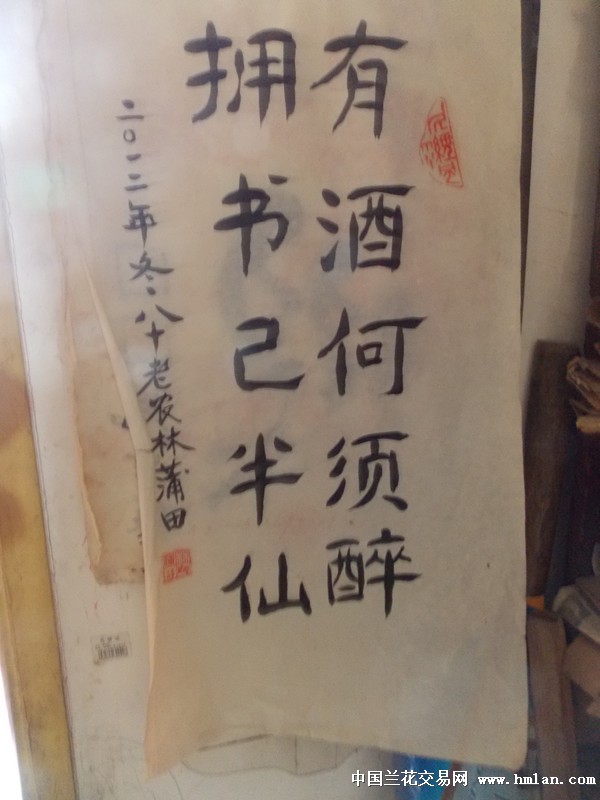 有酒何须醉
拥书已半仙
二〇一二年冬、八十老农林蒲田
中国兰花交易网 www.hmlan.com